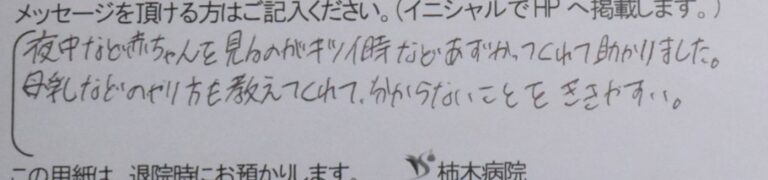 メッセージを頂ける方はご記入ください。(イニシャルでHPへ掲載します。)
夜中など赤ちゃんを見るのがキツイ時などあずかってくれて助かりました。
母乳などのやり方も教えてくれて、分からないことをききやすい。
この用紙は、退院時にお預かりします。 柿木病院